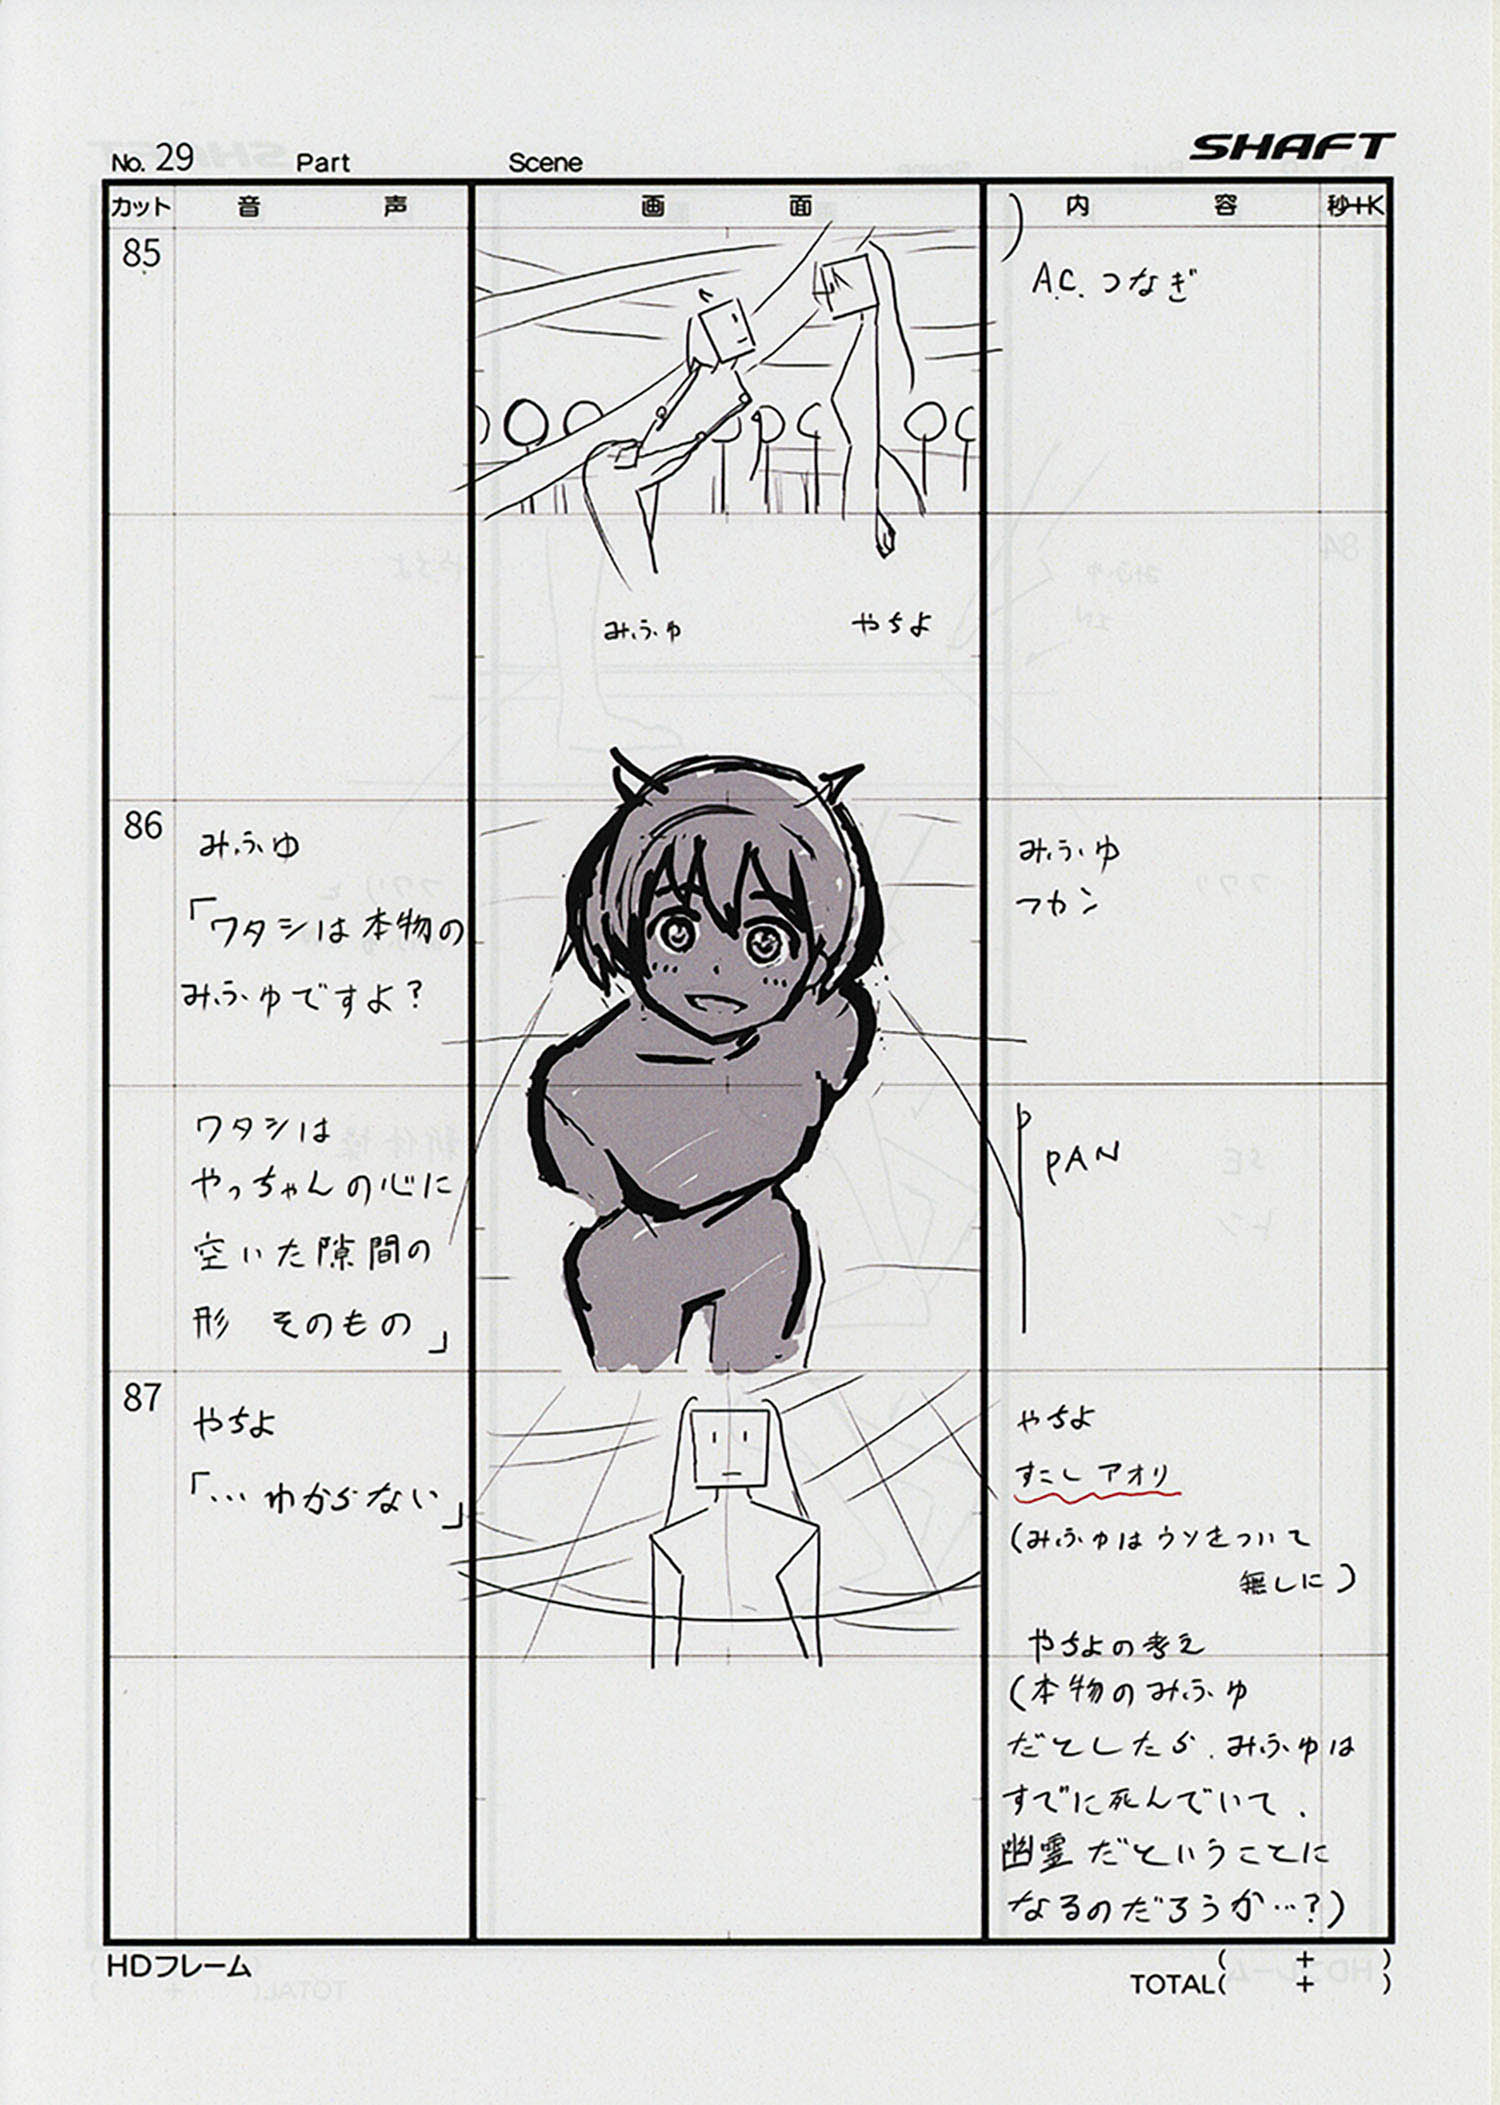 No. 29 Part Scene SHAFT
カット 音声 画面 内容 秒+K
85
)
A.C. つなぎ
みふゆ やちよ
86
みふゆ
「ワタシは本物の
みふゆですよ?
ワタシは
やっちゃんの心に
空いた隙間の
形 そのもの」
みふゆ
フカン
PAN
87
やちよ
「…わからない」
やちよ
すこしアオリ
(みふゆはウソをついて
無しに)
やちよの考え
(本物のみふゆ
だとしたら、みふゆは
すでに死んでいて、
幽霊だということに
なるのだろうか…?)
HDフレーム
( + )
TOTAL( + )